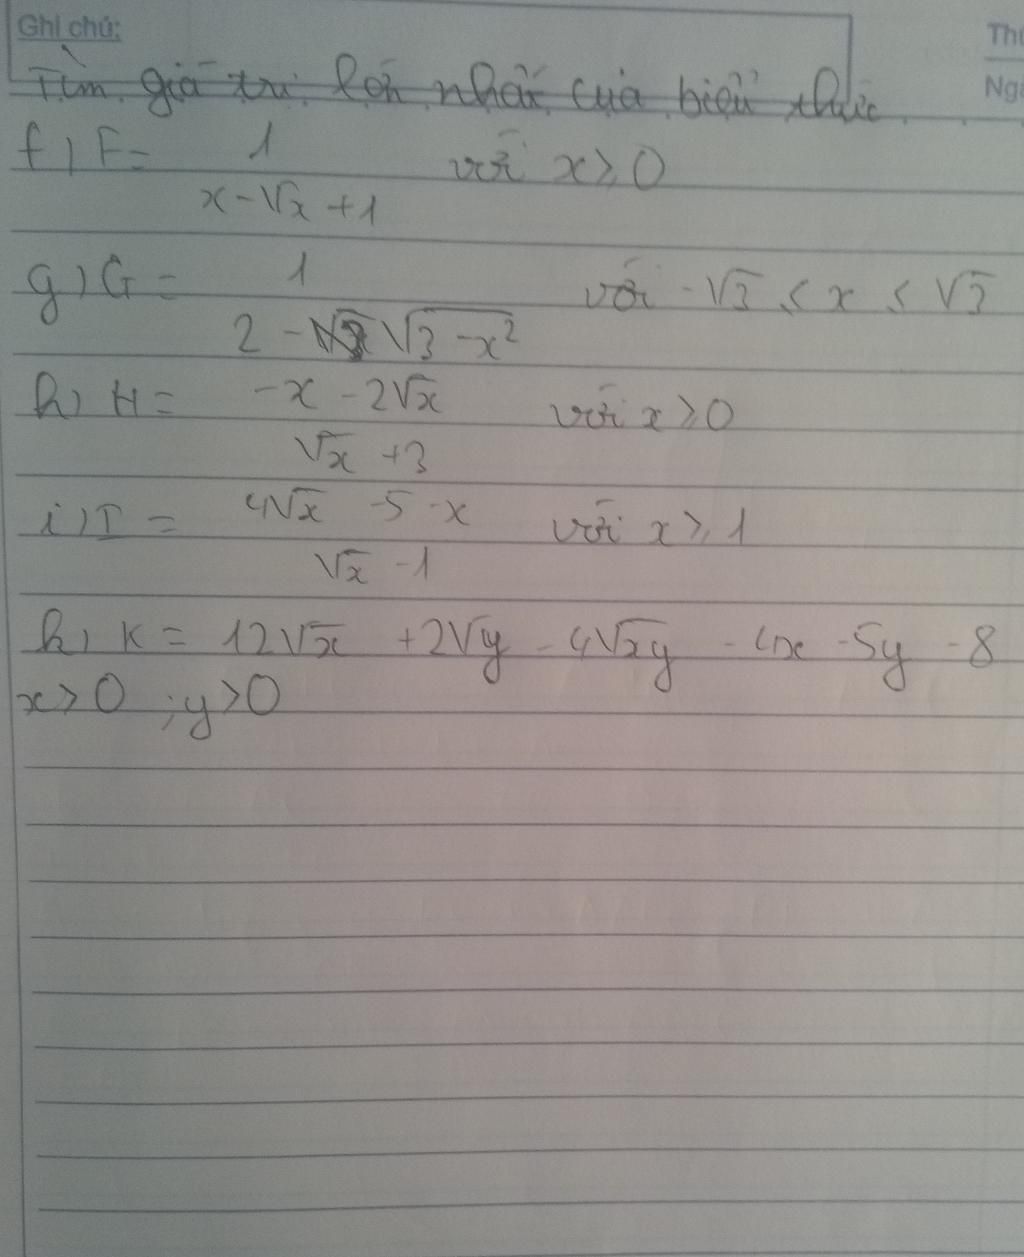 Ghi chú:
Thứ
Ngà
Tìm giá trị lớn nhất của biểu thức
f) F = 1 / (x - √x + 1) với x ≥ 0
g) G = 1 / (2 - √(3 - x²)) với -√3 ≤ x ≤ √3
h) H = (-x - 2√x) / (√x + 3) với x ≥ 0
i) I = (4√x - 5 - x) / (√x - 1) với x ≥ 1
k) K = 12√x + 2√y - 4√xy - 4x - 5y - 8
x > 0 ; y > 0